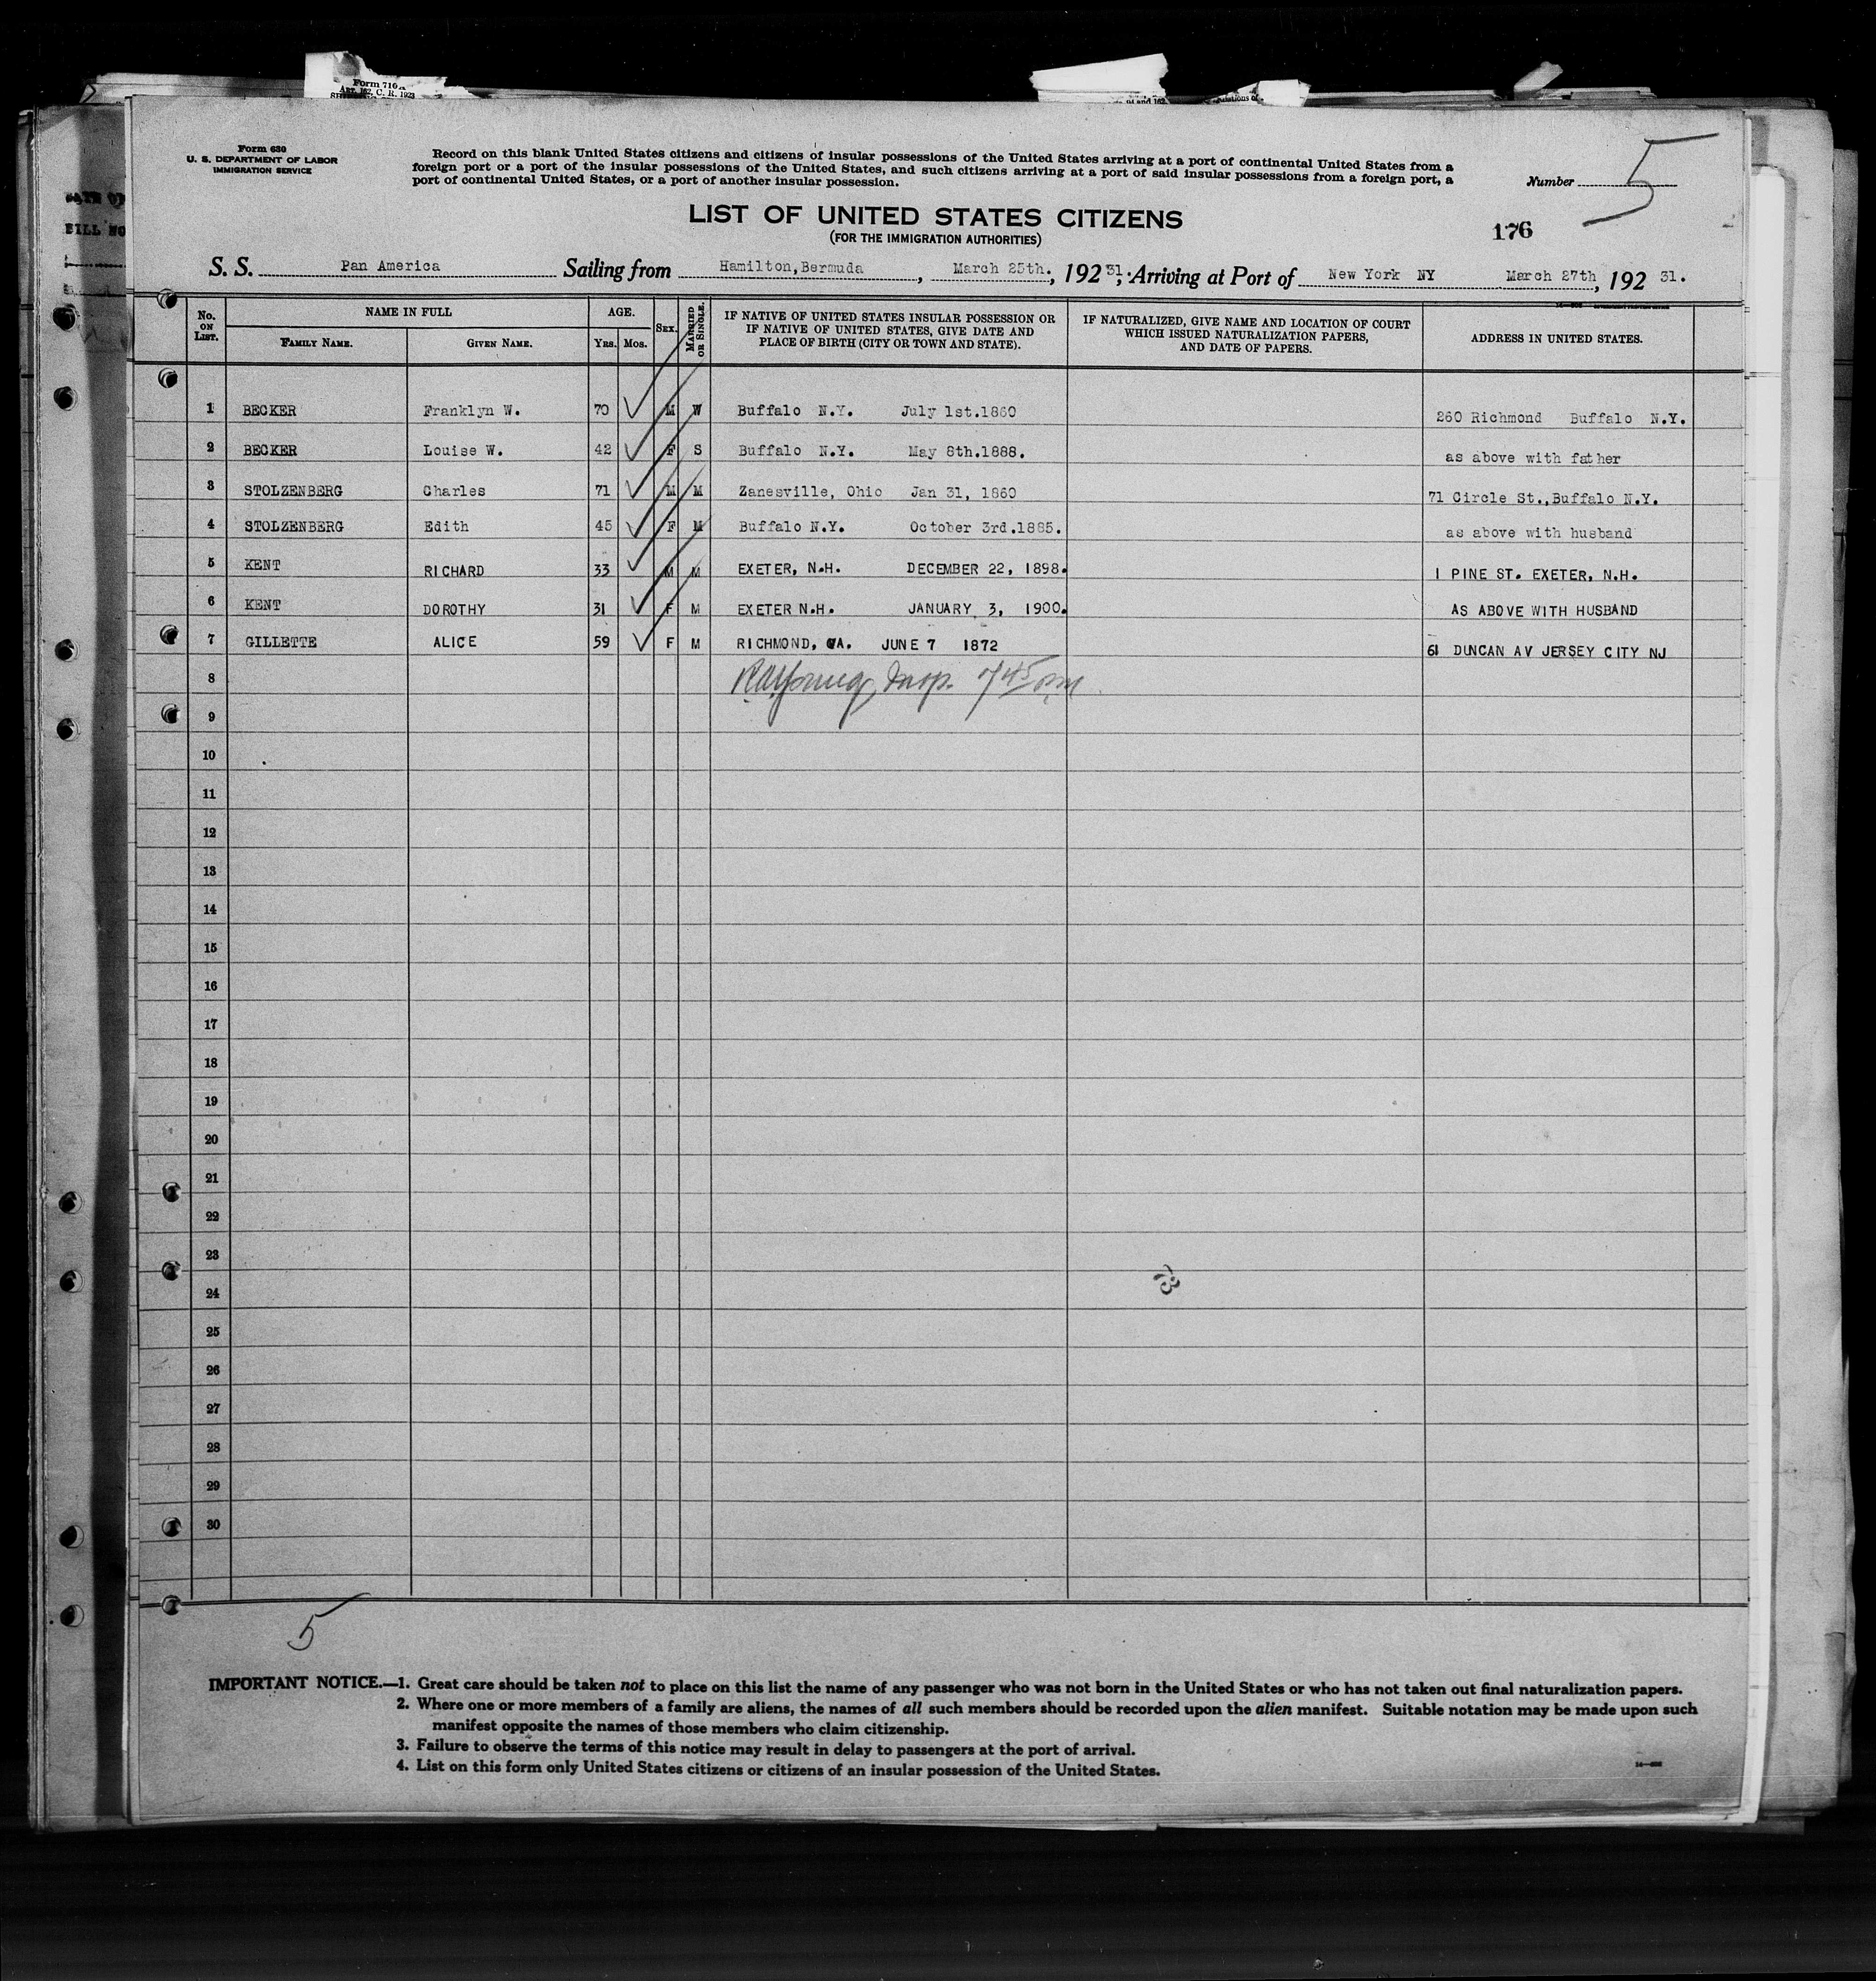 Form 716A
ART. 162, C. R. 1923
Form 630
U. S. DEPARTMENT OF LABOR
IMMIGRATION SERVICE
Record on this blank United States citizens and citizens of insular possessions of the United States arriving at a port of continental United States from a
foreign port or a port of the insular possessions of the United States, and such citizens arriving at a port of said insular possessions from a foreign port, a
port of continental United States, or a port of another insular possession.
Number 5
LIST OF UNITED STATES CITIZENS
(FOR THE IMMIGRATION AUTHORITIES)
176
S. S. Pan America Sailing from Hamilton,Bermuda, March 25th., 192 31; Arriving at Port of New York NY March 27th, 192 31.
No. ON LIST. NAME IN FULL AGE. SEX. MARRIED OR SINGLE. IF NATIVE OF UNITED STATES INSULAR POSSESSION OR IF NATIVE OF UNITED STATES, GIVE DATE AND PLACE OF BIRTH (CITY OR TOWN AND STATE). IF NATURALIZED, GIVE NAME AND LOCATION OF COURT WHICH ISSUED NATURALIZATION PAPERS, AND DATE OF PAPERS. ADDRESS IN UNITED STATES.
FAMILY NAME. GIVEN NAME. YRS. MOS.
1 BECKER Franklyn W. 70 M W Buffalo N.Y. July 1st.1860 260 Richmond Buffalo N.Y.
2 BECKER Louise W. 42 F S Buffalo N.Y. May 8th.1888. as above with father
3 STOLZENBERG Charles 71 M M Zanesville, Ohio Jan 31, 1860 71 Circle St.,Buffalo N.Y.
4 STOLZENBERG Edith 45 F M Buffalo N.Y. October 3rd.1885. as above with husband
5 KENT RICHARD 33 M M EXETER, N.H. DECEMBER 22, 1898. 1 PINE ST. EXETER, N.H.
6 KENT DOROTHY 31 F M EXETER N.H. JANUARY 3, 1900. AS ABOVE WITH HUSBAND
7 GILLETTE ALICE 59 F M RICHMOND, VA. JUNE 7 1872 61 DUNCAN AV JERSEY CITY NJ
8 Young, Insp. 7 45 pm
9
10
11
12
13
14
15
16
17
18
19
20
21
22
23
24
25
26
27
28
29
30
5
IMPORTANT NOTICE.—1. Great care should be taken not to place on this list the name of any passenger who was not born in the United States or who has not taken out final naturalization papers.
2. Where one or more members of a family are aliens, the names of all such members should be recorded upon the alien manifest. Suitable notation may be made upon such
manifest opposite the names of those members who claim citizenship.
3. Failure to observe the terms of this notice may result in delay to passengers at the port of arrival.
4. List on this form only United States citizens or citizens of an insular possession of the United States.